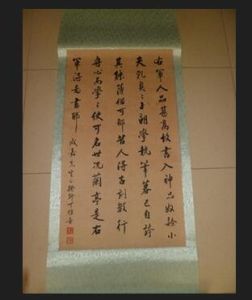 右軍人品甚高故書入神品奴隸小
夫乳臭之子朝學執筆暮已自誇
其能薄俗可鄙昔人得古刻數行
專心而學之便可名世況蘭亭是右
軍得意書耶